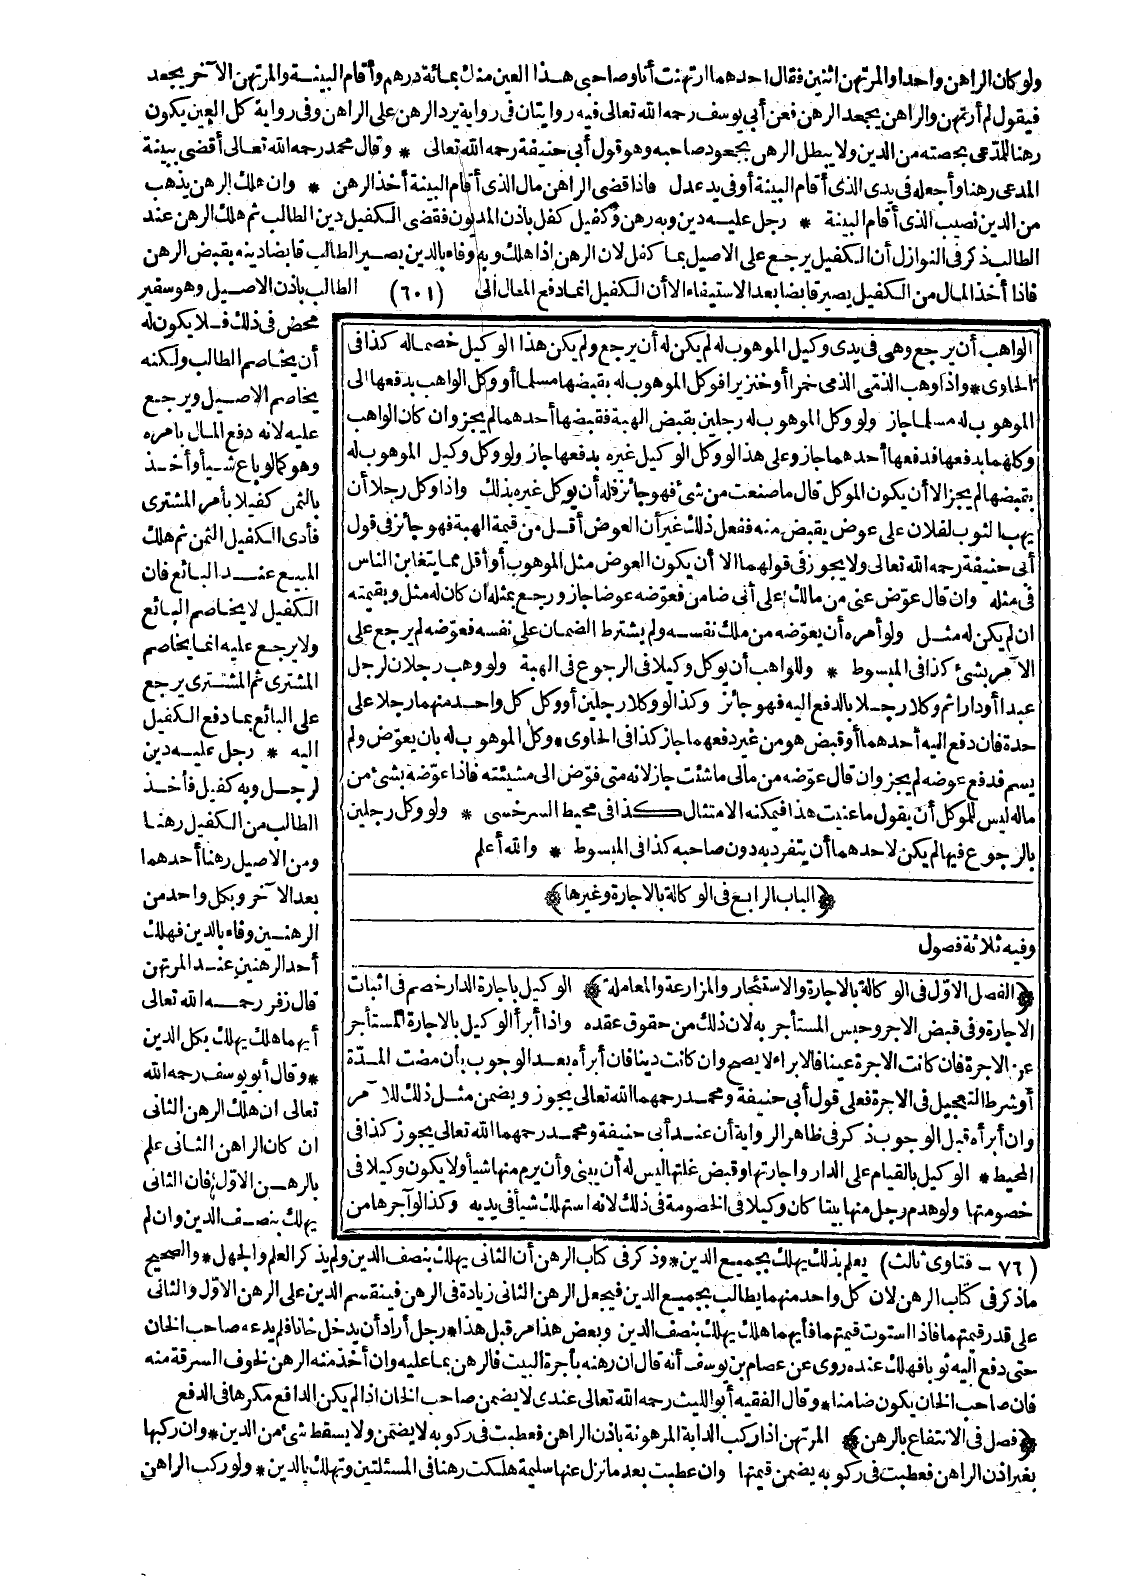 ولو كان الراهن واحدا والمرتهن اثنين فقال احدهما ارتهنت أنا وصاحبي هذا العين منك بمائة درهم وأقام البينة والمرتهن الآخر يجحد
فيقول لم أرتهن والراهن يجحد الرهن فعن أبي يوسف رحمه الله تعالى فيه روايتان في رواية يرد الرهن على الراهن وفي رواية كل العين يكون
رهنا للمدّعي بحصته من الدين ولا يبطل الرهن بجحود صاحبه وهو قول أبي حنيفة رحمه الله تعالى * وقال محمد رحمه الله تعالى أقضي ببينة
المدعي رهنا وأجعله في يدي الذي أقام البينة أو في يد عدل فاذا قضى الراهن مال الذي أقام البينة أخذ الرهن * وان هلك الرهن يذهب
من الدين نصيب الذي أقام البينة * رجل عليه دين وبه رهن وكفيل كفل باذن المديون فقضى الكفيل دين الطالب ثم هلك الرهن عند
الطالب ذكر في النوازل أن الكفيل يرجع على الاصيل بما كفل لان الرهن اذا هلك وبه وفاء بالدين يصير الطالب قابضا دينه بقبض الرهن
فاذا أخذ المال من الكفيل يصير قابضا بعد الاستيفاء الا أن الكفيل انما دفع المال الى (٦٠١) الطالب باذن الاصيل وهو سفير
محض في ذلك فلا يكون له
أن يخاصم الطالب ولكنه
يخاصم الاصيل ويرجع
عليه لانه دفع المال بامره
وهو كما لو باع شيأ وأخذ
بالثمن كفيلا بأمر المشتري
فأدى الكفيل الثمن ثم هلك
المبيع عند البائع فان
الكفيل لا يخاصم البائع
ولا يرجع عليه انما يخاصم
المشتري ثم المشتري يرجع
على البائع بما دفع الكفيل
اليه * رجل عليه دين
لرجل وبه كفيل فأخذ
الطالب من الكفيل رهنا
ومن الاصيل رهنا أحدهما
بعد الآخر وبكل واحد من
الرهنين وفاء بالدين فهلك
أحد الرهنين عند المرتهن
قال زفر رحمه الله تعالى
أيهما هلك يهلك بكل الدين
* وقال أبو يوسف رحمه الله
تعالى ان هلك الرهن الثاني
ان كان الراهن الثاني علم
بالرهن الاوّل فان الثاني
يهلك بنصف الدين وان لم
الواهب أن يرجع وهي في يدي وكيل الموهوب له لم يكن له أن يرجع ولم يكن هذا الوكيل خصما له كذا في
الحاوي * واذا وهب الذمّي الذمي خمرا أو خنزيرا فوكل الموهوب له بقبضها مسلما أو وكل الواهب بدفعها الى
الموهوب له مسلما جاز ولو وكل الموهوب له رجلين بقبض الهبة فقبضها أحدهما لم يجز وان كان الواهب
وكلهما بدفعها فدفعها أحدهما جاز وعلى هذا لو وكل الوكيل غيره بدفعها جاز ولو وكل وكيل الموهوب له
بقبضها لم يجز الا أن يكون الموكل قال ما صنعت من شئ فهو جائز فله أن يوكل غيره بذلك واذا وكل رجلا أن
يهب الثوب لفلان على عوض يقبض منه ففعل ذلك غير أن العوض أقل من قيمة الهبة فهو جائز في قول
أبي حنيفة رحمه الله تعالى ولا يجوز في قولهما الا أن يكون العوض مثل الموهوب أو أقل مما يتغابن الناس
في مثله وان قال عوّض عني من مالك على أني ضامن فعوّضه عوضا جاز ورجع بمثله ان كان له مثل وبقيمته
ان لم يكن له مثل ولو أمره أن يعوّضه من ملك نفسه ولم يشترط الضمان على نفسه فعوّضه لم يرجع على
الآمر بشئ كذا في المبسوط * وللواهب أن يوكل وكيلا في الرجوع في الهبة ولو وهب رجلان لرجل
عبدا أو دارا ثم وكلا رجلا بالدفع اليه فهو جائز وكذا لو وكلا رجلين أو وكل كل واحد منهما رجلا على
حدة فان دفع اليه أحدهما أو قبض هو من غير دفعهما جاز كذا في الحاوي * وكل الموهوب له بان يعوّض ولم
يسم فدفع عوضه لم يجز وان قال عوّضه من مالي ما شئت جاز لانه متى فوّض الى مشيئته فاذا عوّضه بشئ من
ماله ليس للموكل أن يقول ما عنيت هذا فيمكنه الامتثال كذا في محيط السرخسي * ولو وكل رجلين
بالرجوع فيها لم يكن لاحدهما أن يتفرد به دون صاحبه كذا في المبسوط * والله أعلم
﴿الباب الرابع في الوكالة بالاجارة وغيرها﴾
وفيه ثلاثة فصول
﴿الفصل الاوّل في الوكالة بالاجارة والاستئجار والمزارعة والمعاملة﴾ الوكيل باجارة الدار خصم في اثبات
الاجارة وفي قبض الاجر وحبس المستأجر به لان ذلك من حقوق عقده واذا أبرأ الوكيل بالاجارة المستأجر
عن الاجرة فان كانت الاجرة عينا فالابراء لا يصح وان كانت دينا فان أبرأه بعد الوجوب بأن مضت المدّة
أو شرط التعجيل في الاجرة فعلى قول أبي حنيفة ومحمد رحمهما الله تعالى يجوز ويضمن مثل ذلك للآمر
وان أبرأه قبل الوجوب ذكر في ظاهر الرواية أن عند أبي حنيفة ومحمد رحمهما الله تعالى يجوز كذا في
المحيط * الوكيل بالقيام على الدار واجارتها وقبض غلتها ليس له أن يبني وأن يرم منها شيأ ولا يكون وكيلا في
خصومتها ولو هدم رجل منها بيتا كان وكيلا في الخصومة في ذلك لانه استهلك شيأ في يديه وكذا لو آجرها من
(٧٦ - فتاوى ثالث) يعلم بذلك يهلك بجميع الدين * وذكر في كتاب الرهن أن الثاني يهلك بنصف الدين ولم يذكر العلم والجهل * والصحيح
ما ذكر في كتاب الرهن لان كل واحد منهما يطالب بجميع الدين فيجعل الرهن الثاني زيادة في الرهن فينقسم الدين على الرهن الاوّل والثاني
على قدر قيمتهما فاذا استوت قيمتهما فأيهما هلك يهلك بنصف الدين وبعض هذا مر قبل هذا * رجل أراد أن يدخل خانا فلم يدعه صاحب الخان
حتى دفع اليه ثوبا فهلك عنده روى عن عصام بن يوسف أنه قال ان رهنه بأجرة البيت فالرهن بما عليه وان أخذ منه الرهن لخوف السرقة منه
فان صاحب الخان يكون ضامنا * وقال الفقيه أبو الليث رحمه الله تعالى عندي لا يضمن صاحب الخان اذا لم يكن الدافع مكرها في الدفع
﴿فصل في الانتفاع بالرهن﴾ المرتهن اذا ركب الدابة المرهونة باذن الراهن فعطبت في ركوبه لا يضمن ولا يسقط شئ من الدين * وان ركبها
بغير اذن الراهن فعطبت في ركوبه يضمن قيمتها وان عطبت بعد ما نزل عنها سليمة هلكت رهنا في المسئلتين وتهلك بالدين * ولو ركب الراهن